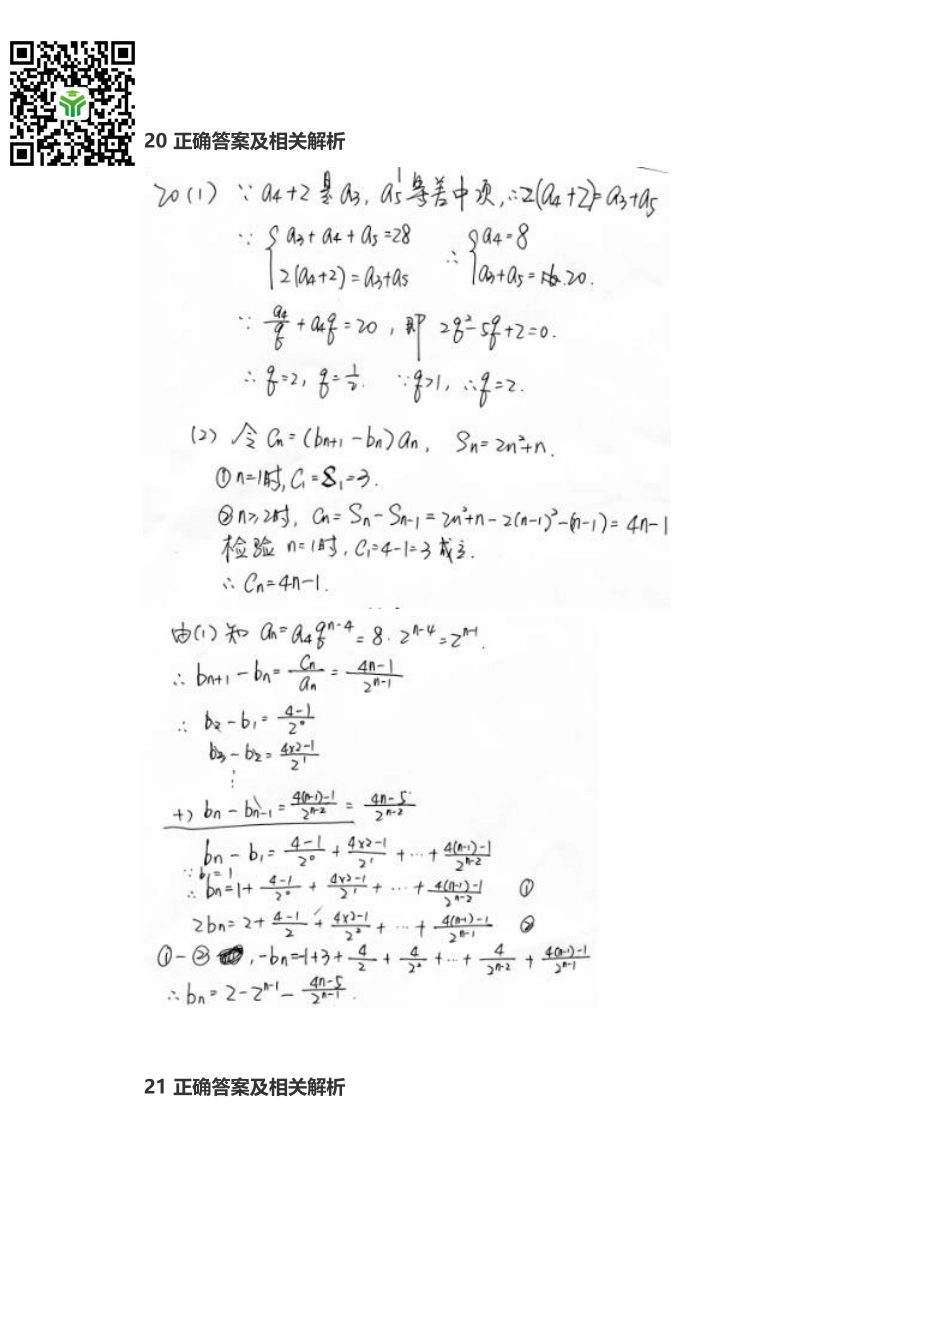 20 正确答案及相关解析
20(1) ∵ a₄+2是a₃, a₅等差中项, ∴2(a₄+2)=a₃+a₅
∵ { a₃+a₄+a₅=28 ∴ { a₄=8
2(a₄+2)=a₃+a₅ a₃+a₅=20.
∵ a₄/q + a₄q = 20, 即 2q²-5q+2=0.
∴ q=2, q=1/2. ∵q>1, ∴q=2.
(2) 令 Cn=(bn+1-bn)an, Sn=2n²+n.
①n=1时, C₁=S₁=3.
②n≥2时, Cn=Sn-Sn-1=2n²+n-2(n-1)²-(n-1)=4n-1
检验 n=1时, C₁=4-1=3 成立.
∴ Cn=4n-1.
由(1)知 an=a₄qⁿ⁻⁴=8·2ⁿ⁻⁴=2ⁿ⁻¹.
∴ bn+1-bn=Cn/an=(4n-1)/2ⁿ⁻¹
∴ b₂-b₁=(4-1)/2⁰
b₃-b₂=(4×2-1)/2¹
⋮
+) bn-bn-1=(4(n-1)-1)/2ⁿ⁻²=(4n-5)/2ⁿ⁻²
bn-b₁=(4-1)/2⁰+(4×2-1)/2¹+…+(4(n-1)-1)/2ⁿ⁻²
∵ b₁=1
∴ bn=1+(4-1)/2⁰+(4×2-1)/2¹+…+(4(n-1)-1)/2ⁿ⁻² ①
2bn=2+(4-1)/2+(4×2-1)/2²+…+(4(n-1)-1)/2ⁿ⁻¹ ②
①-②, -bn=-1+3+4/2+4/2²+…+4/2ⁿ⁻²+(4(n-1)-1)/2ⁿ⁻¹
∴bn=2-2ⁿ⁻¹-(4n-5)/2ⁿ⁻¹.
21 正确答案及相关解析